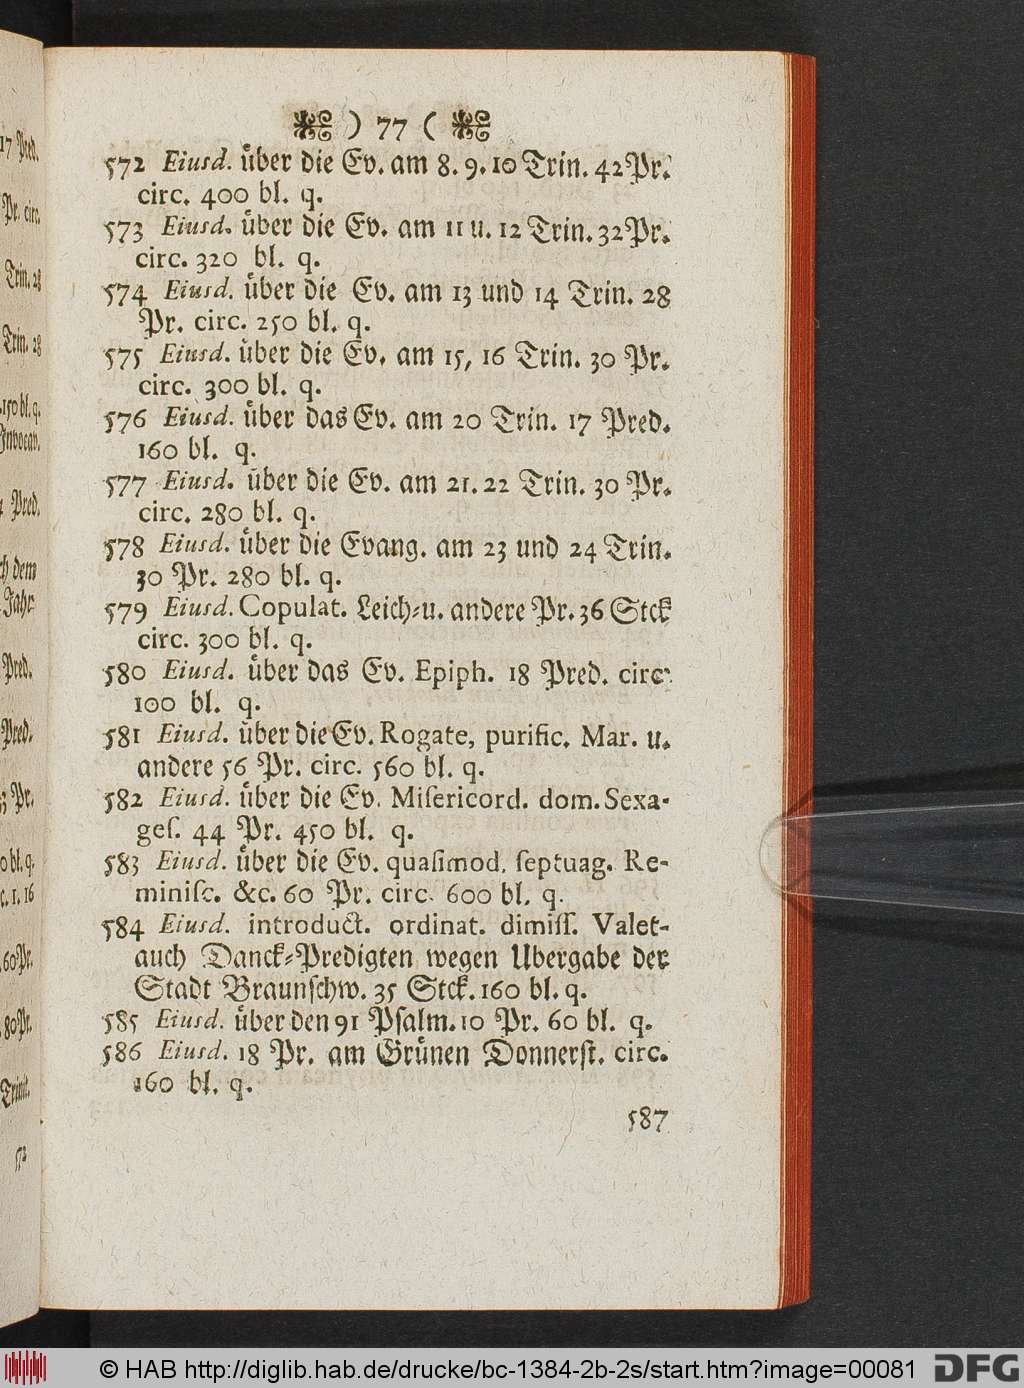 ) 77 (
572 Eiusd. über die Ev. am 8. 9. 10 Trin. 42 Pr.
circ. 400 bl. q.
573 Eiusd. über die Ev. am 11 u. 12 Trin. 32 Pr.
circ. 320 bl. q.
574 Eiusd. über die Ev. am 13 und 14 Trin. 28
Pr. circ. 250 bl. q.
575 Eiusd. über die Ev. am 15, 16 Trin. 30 Pr.
circ. 300 bl. q.
576 Eiusd. über das Ev. am 20 Trin. 17 Pred.
160 bl. q.
577 Eiusd. über die Ev. am 21. 22 Trin. 30 Pr.
circ. 280 bl. q.
578 Eiusd. über die Evang. am 23 und 24 Trin.
30 Pr. 280 bl. q.
579 Eiusd. Copulat. Leich-u. andere Pr. 36 Stck
circ. 300 bl. q.
580 Eiusd. über das Ev. Epiph. 18 Pred. circ.
100 bl. q.
581 Eiusd. über die Ev. Rogate, purific. Mar. u.
andere 56 Pr. circ. 560 bl. q.
582 Eiusd. über die Ev. Miſericord. dom. Sexa-
geſ. 44 Pr. 450 bl. q.
583 Eiusd. über die Ev. quaſimod. ſeptuag. Re-
miniſc. &c. 60 Pr. circ. 600 bl. q.
584 Eiusd. introduct. ordinat. dimiſſ. Valet-
auch Danck-Predigten wegen Ubergabe der
Stadt Braunſchw. 35 Stck. 160 bl. q.
585 Eiusd. über den 91 Pſalm. 10 Pr. 60 bl. q.
586 Eiusd. 18 Pr. am Grünen Donnerſt. circ.
160 bl. q.
587
17 Pred.
Pr. circ.
Trin. 28
Trin. 28
150 bl. q.
Invocav.
Pred.
dem
Jahr
Pred.
Pred.
Pr.
bl. q.
c. 1. 16
60 Pr.
80 Pr.
Trinit.
572
© HAB http://diglib.hab.de/drucke/bc-1384-2b-2s/start.htm?image=00081
DFG